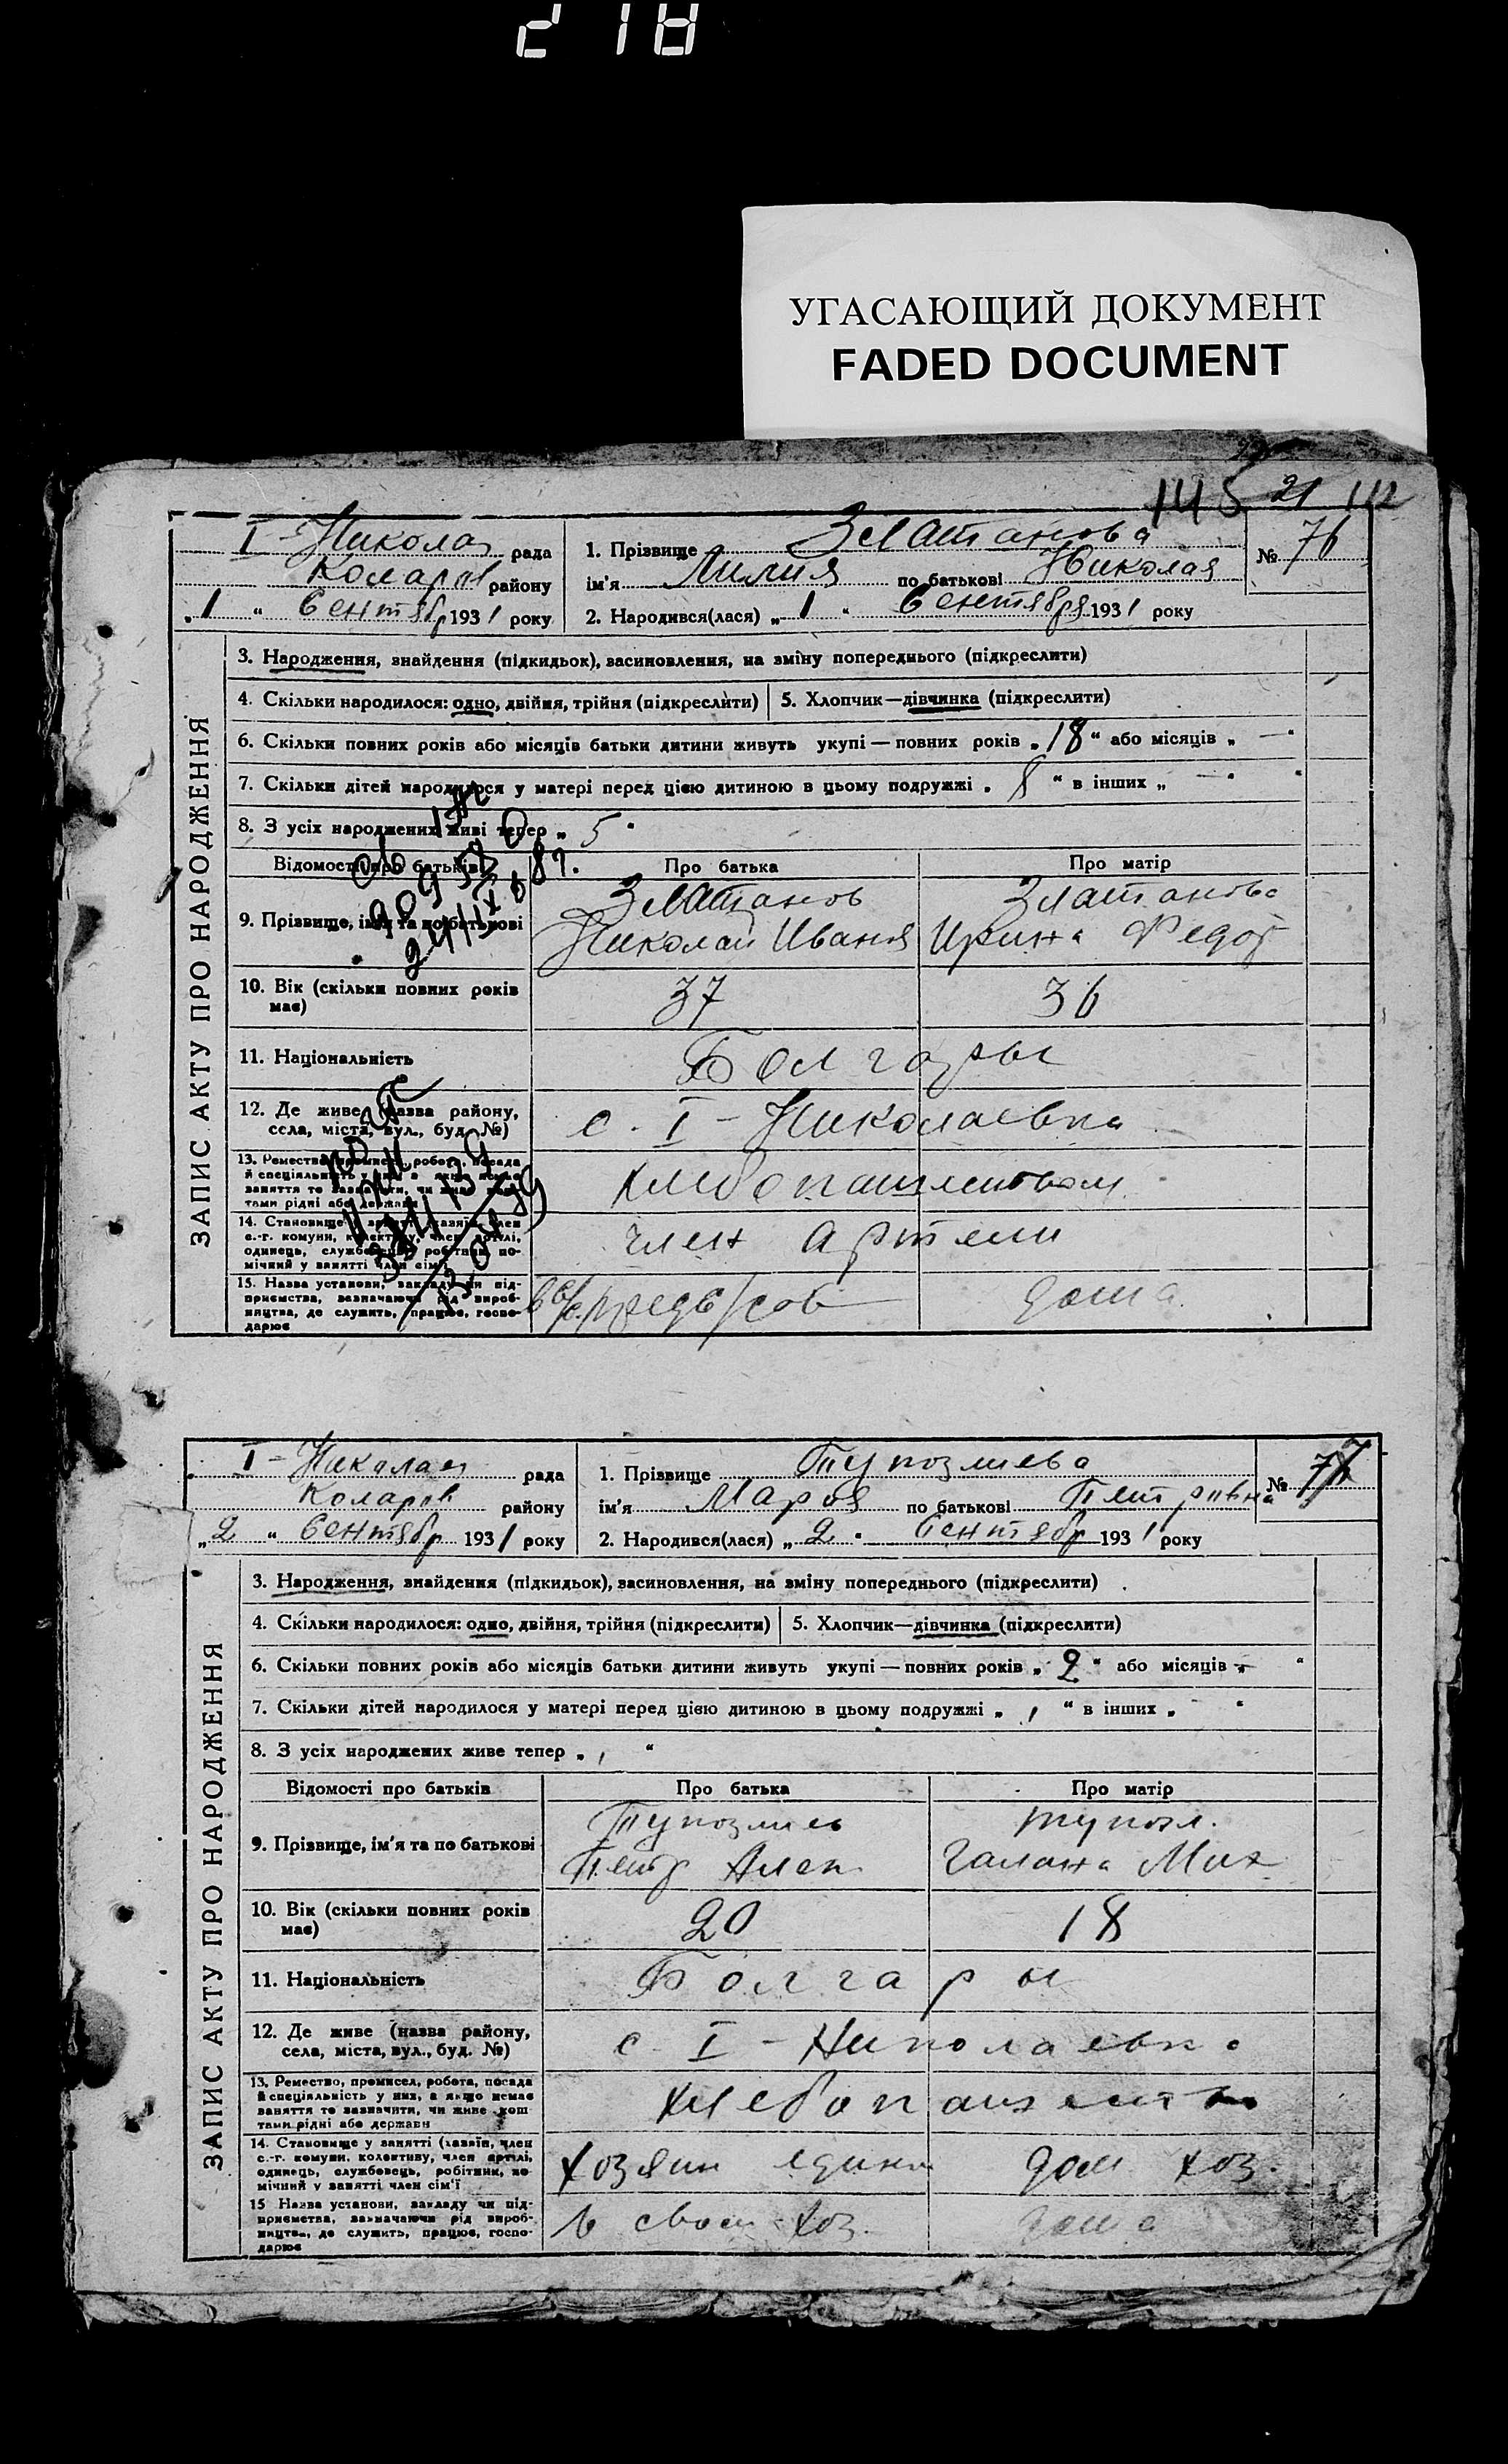 218
УГАСАЮЩИЙ ДОКУМЕНТ
FADED DOCUMENT
145 21 112
I-Никола рада
Коларов району
„1 “ Сентябр 1931 року
1. Прізвище Златанова
ім'я Лилия по батькові Николая
2. Народився(лася) „1 “ Сентября 1931 року
№ 76
ЗАПИС АКТУ ПРО НАРОДЖЕННЯ
3. Народження, знайдення (підкидьок), засиновлення, на зміну попереднього (підкреслити)
4. Скільки народилося: одно, двійня, трійня (підкреслити) 5. Хлопчик—дівчинка (підкреслити)
6. Скільки повних років або місяців батьки дитини живуть укупі — повних років „18“ або місяців „ — “
7. Скільки дітей народилося у матері перед цією дитиною в цьому подружжі „ 8 “ в інших „ — “
8. З усіх народжених живі тепер „ 5 “
Відомості про батьків Про батька Про матір
9. Прізвище, ім'я та по батькові
Златанов Златанова
Николай Иваня Ирина Федот
10. Вік (скільки повних років має) 37 36
11. Національність Болгары
12. Де живе (назва району, села, міста, вул., буд. №) с. I-Николаевка
13. Ремество, промисел, робота, посада
й спеціальність у них, а якщо немає
заняття то зазначити, чи живе кош-
тами рідні або держави
14. Становище у занятті (хазяїн, член
с.-г. комуни, колективу, член артілі,
одинець, службовець, робітник, по-
мічний у занятті член сім'ї
член артели
15. Назва установи, закладу чи під-
приємства, зазначаючи рід вироб-
ництва, де служить, працює, госпо-
дарює
дома
I-Николаев рада
Коларов району
„2 “ Сентябр 1931 року
1. Прізвище Тупозлиева
ім'я Мария по батькові Петровна
2. Народився(лася) „2 “ Сентябр 1931 року
№ 77
ЗАПИС АКТУ ПРО НАРОДЖЕННЯ
3. Народження, знайдення (підкидьок), засиновлення, на зміну попереднього (підкреслити)
4. Скільки народилося: одно, двійня, трійня (підкреслити) 5. Хлопчик—дівчинка (підкреслити)
6. Скільки повних років або місяців батьки дитини живуть укупі — повних років „ 2 “ або місяців „ — “
7. Скільки дітей народилося у матері перед цією дитиною в цьому подружжі „ 1 “ в інших „ “
8. З усіх народжених живе тепер „ 1 “
Відомості про батьків Про батька Про матір
9. Прізвище, ім'я та по батькові
Тупозлиев тупозл.
Петр Алек Галана Мих
10. Вік (скільки повних років має) 20 18
11. Національність Болгары
12. Де живе (назва району, села, міста, вул., буд. №) с. I-Николаевка
13. Ремество, промисел, робота, посада
й спеціальність у них, а якщо немає
заняття то зазначити, чи живе кош-
тами рідні або держави
14. Становище у занятті (хазяїн, член
с.-г. комуни, колективу, член артілі,
одинець, службовець, робітник, по-
мічний у занятті член сім'ї
хозяин един дом хоз.
15 Назва установи, закладу чи під-
приємства, зазначаючи рід вироб-
ництва, де служить, працює, госпо-
дарює
в своем хоз. дома